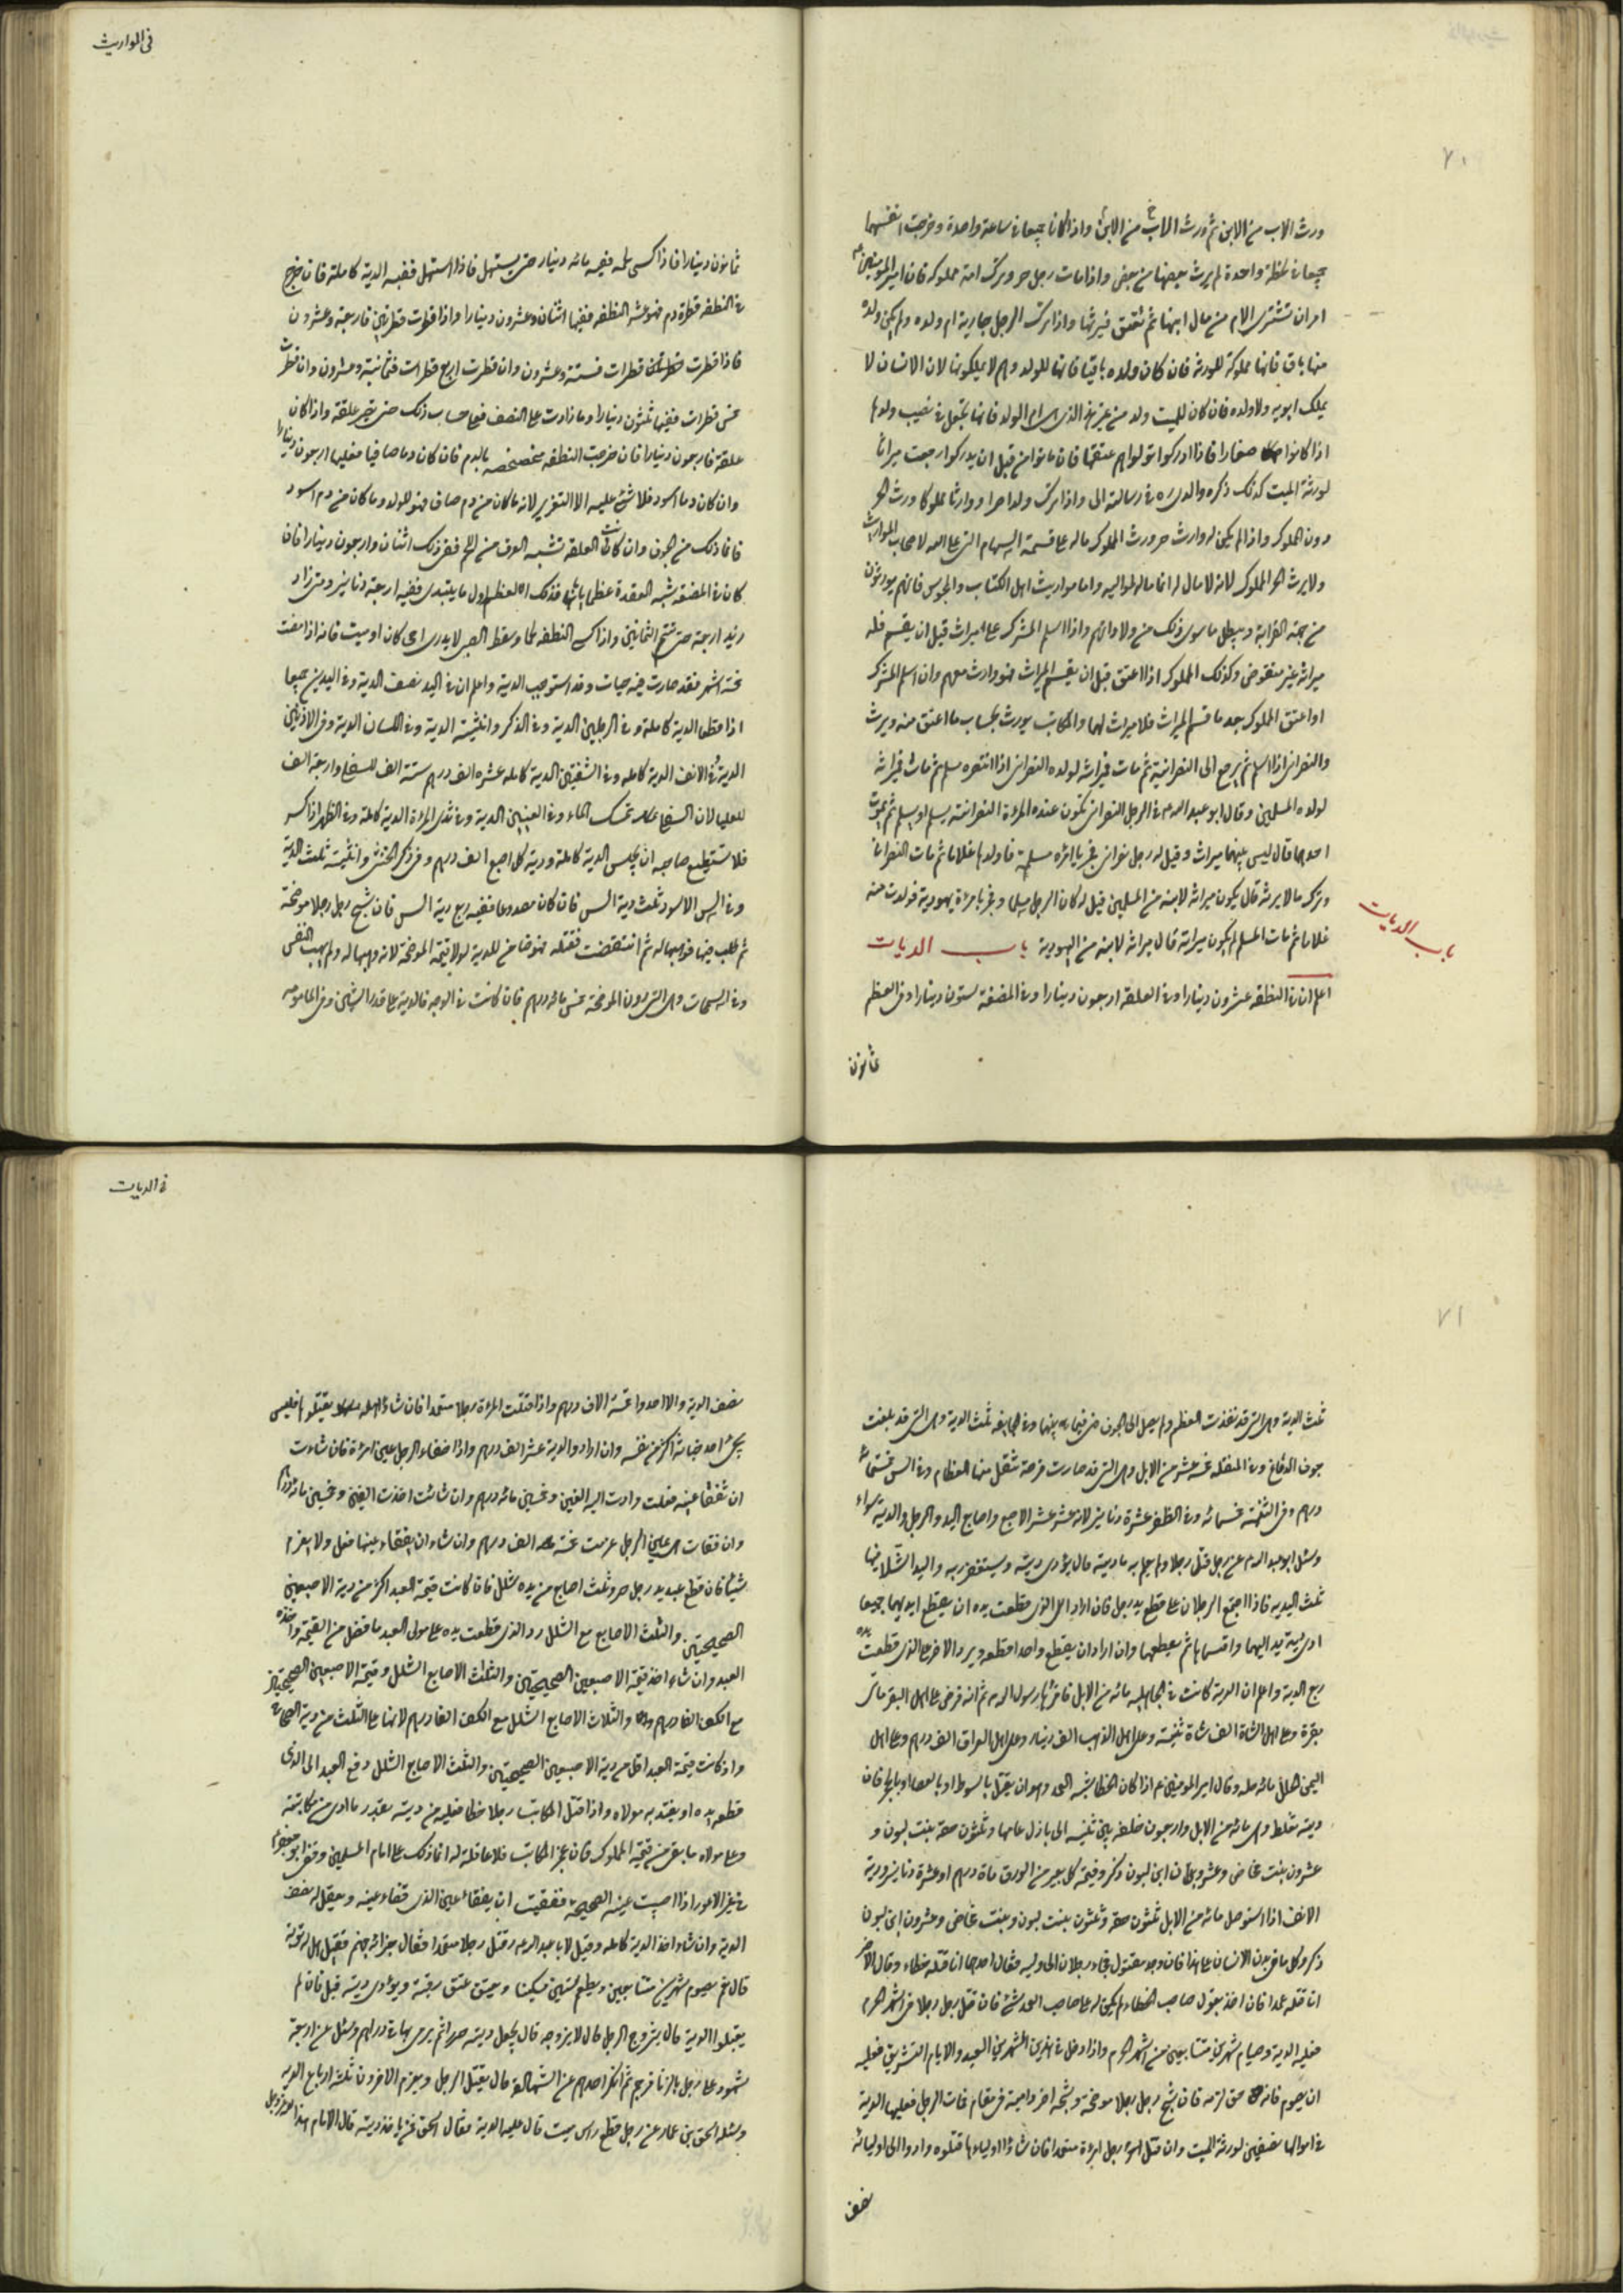 ورث الاب من الابن ثم ورث الاب من الابن واذا كانا جميعا في ساعة واحدة وخرجت انفسهما
جميعا في لحظة واحدة لم يرث بعضهما من بعض واذا مات رجل حر وترك امة مملوكة فان امير المؤمنين ع
امر ان تشترى الام من مال ابنها ثم تعتق فيرثها واذا ترك الرجل جارية ام ولده ولم يكن ولده
منها باق فانها مملوكة للورثة فان كان ولده باقيا فانها للولد وهم لا يملكونها لان الانسان لا
يملك ابويه ولا ولده فان كان للميت ولد من غير هذا الذي ام الولد فانها تجعل في نصيب ولدها
اذا كانوا صغارا فاذا ادركوا تولوا هم عتقها فان ماتوا من قبل ان يدركوا رجعت ميراثا
لورثة الميت كذلك ذكره والدي ره في رسالته الي واذا ترك ولدا حرا ووارثا مملوكا ورث الحر
دون المملوك واذا لم يكن له وارث حر ورث المملوك ماله على قسمة السهام التي علا الله لاصحاب المواريث
ولا يرث الحر المملوك لانه لا مال له انما ماله لمواليه واما مواريث اهل الكتاب والمجوس فانهم يورثون
من جهة القرابة ويبطل ما سوى ذلك من ولاداتهم واذا اسلم المشرك على ميراث قبل ان يقسم فله
ميراثه غير منقوض وكذلك المملوك اذا اعتق قبل ان يقسم الميراث فهو وارث معهم وان اسلم المشرك
او اعتق المملوك بعد ما قسم الميراث فلا ميراث لهما والمكاتب يورث بحساب ما اعتق منه ويرث
والنصراني اذا اسلم ثم رجع الى النصرانية ثم مات فميراثه لولده النصراني اذا تنصر مسلم ثم مات فميراثه
لولده المسلمين وقال ابو عبد الله ع في الرجل النصراني تكون عنده المراة النصرانية يسلم او يسلم ثم يموت
احدهما قال ليس بينهما ميراث وقيل له رجل نصراني فجر بامراة مسلمة فاولدها غلاما ثم مات النصراني
وترك مالا يرثه قال يكون ميراثه لابنه من المسلمين قيل له كان الرجل مسلما وفجر بامراة يهودية فولدت منه
غلاما ثم مات المسلم لمن يكون ميراثه قال ميراثه لابنه من اليهودية باب الديات
باب الديات
اعلم ان في النطفة عشرون دينارا وفي العلقة اربعون دينارا وفي المضغة ستون دينارا وفي العظم
ثمانون
في المواريث
ثمانون دينارا فاذا كسى لحمه ففيه مائه دينار حتى يستهل فاذا استهل ففيه الدية كاملة فان خرج
في النطفة قطرة دم فهو عشر النطفة ففيها اثنان وعشرون دينارا واذا قطرت قطرتين فاربعة وعشرون
فاذا قطرت ثلث قطرات فستة وعشرون وان قطرت اربع قطرات فثمانية وعشرون وان قطرت
خمس قطرات ففيها ثلثون دينارا وما زادت على النصف فعلى حساب ذلك حتى تصير علقة واذا كان
علقة فاربعون دينارا فان خرجت النطفة متخضخضة بالدم فان كان دما صافيا ففيها اربعون دينارا
وان كان دما اسود فلا شئ عليه الا التعزير لانه ما كان من دم صاف فهو للولد وما كان من دم اسود
فانما ذلك من الجوف وان كانت العلقة تشبه العرق من اللحم ففي ذلك اثنان واربعون دينارا فان
كان في المضغة شبه العقدة عظما يابسا فذلك العظم اول ما يبتدى ففيه اربعة دنانير ومتى زاد
زيد اربعة حتى تتم الثمانين واذا كسي النطفة لحما وسقط الصبي لا يدرى احي كان او ميت فانه اذا مضت
خمسة اشهر فقد صارت فيه حيات وقد استوجب الدية واعلم ان في اليد نصف الدية وفي اليدين جميعا
اذا قطعا الدية كاملة وفي الرجلين الدية وفي الذكر وانثييه الدية وفي اللسان الدية وفي الاذنين
الدية وفي الانف الدية كاملة وفي الشفتين الدية كاملة عشرة الف درهم ستة الف للسفلى واربعة الف
للعليا لان السفلى تمسك الماء وفي العينين الدية وفي ثدي المراة الدية كاملة وفي الظهر اذا كسر
فلا يستطيع صاحبه ان يجلس الدية كاملة ودية كل اصبع الف درهم وفي ذكر الخنثى وانثييه ثلث الدية
وفي السن الاسود ثلث دية السن فان كان مصدوعا ففيه ربع دية السن فان شج رجل رجلا موضحة
ثم طلب فيها فوهبها له ثم انتقضت فقتلته فهو ضامن للدية الا قيمة الموضحة لانه وهبها له ولم يهب النفس
وفي السمحاق وهي التي دون الموضحة خمس مائه درهم فان كانت في الوجه فالدية على قدر الشين وفي المامومه
ثلث الدية وهي التي قد نفذت العظم ولم يصل الى الجوف فهي فيما بينهما وفي الجايفة ثلث الدية وهي التي قد بلغت
جوف الدماغ وفي المنقلة خمسة عشر من الابل وهي التي قد صارت قرحة تنقل منها العظام وفي السن خمسمائة
درهم وفي الثنية خمسمائه وفي الظفر عشرة دنانير لانه عشر عشر الاصبع واصابع اليد والرجل والدية سواء
وسئل ابو عبد الله ع عن رجل قتل رجلا ولم يعلم به ما ديته قال يؤدى ديته ويستغفر ربه واليد الشلاء فيها
ثلث الدية فاذا اجتمع الرجلان على قطع يد رجل فان اراد الذي قطعت يده ان يقطع ايديهما جميعا
ادى دية يد اليهما واقتسماها ثم يقطعهما وان اراد ان يقطع واحدا قطعه ويرد الاخر على الذي قطعت يده
ربع الدية واعلم ان الدية كانت في الجاهلية مائه من الابل فاقرها رسول الله ثم انه فرض على اهل البقر مائتي
بقرة وعلى اهل الشاة الف شاة ثنية وعلى اهل الذهب الف دينار وعلى اهل العراق الف درهم وعلى اهل
اليمن الحلل مائه حلة وقال امير المؤمنين ع اذا كان الخطا شبه العمد وهو ان يقتل بالسوط او بالعصا او بالحجارة فان
ديته تغلظ وهي مائه من الابل واربعون خلفة بين ثنية الى بازل عامها وثلثون حقة بنت لبون و
عشرون بنت مخاض وعشرون ابن لبون ذكر وقيمة كل بعير من الورق مائة درهم او عشرة دنانير ودية
الانف اذا استوصل مائه من الابل ثلثون حقة وثلثون بنت لبون وبنت مخاض وعشرون ابن لبون
ذكر وكل ما في بدن الانسان على هذا فان وجد مقتول فجاء رجلان الى وليه فقال احدهما انا قتلته خطاء وقال الاخر
انا قتلته عمدا فان اخذ بقول صاحب الخطاء لم يكن له على صاحب العمد شئ فان قتل رجل رجلا في اشهر الحرم
فعليه الدية وصيام شهرين متتابعين من اشهر الحرم واذا دخل في هذين الشهرين العيد والايام التشريق فعليه
ان يصوم فانه حق لزمه فان شج رجل رجلا موضحة وشجه اخر دامية في مقام فمات الرجل فعليهما الدية
في اموالهما نصفين لورثة الميت وان قتل رجل امراة متعمدا فان شاؤا اولياءها قتلوه وادوا الى اوليائه
نصف
في الديات
نصف الدية والا اخذوا خمسة الاف درهم واذا قتلت المراة رجلا متعمدا فان شاؤا اهله يقتلوها فليس
يجر احد جناية اكثر من نفسه وان ارادوا الدية عشر الف درهم واذا فقاء الرجل عين امراة فان شاءت
ان تفقأ عينه فعلت وادت اليه الفين وخمسين مائه درهم وان شائت اخذت الفين وخمسين مائه درهم
وان فقات هي عين الرجل غرمت خمسة الف درهم وان شاء ان يفقاء عينها فعل ولا يغرم
شيئا فان قطع عبد يد رجل حر وثلث اصابع من يده شلل فان كانت قيمة العبد اكثر من دية الاصبعين
الصحيحتين والثلث الاصابع مع الشلل رد الذي قطعت يده على مولى العبد ما فضل من القيمة واخذ
العبد وان شاء اخذ قيمة الاصبعين الصحيحتين والثلث الاصابع الشلل وقيمة الاصبعين الصحيحتين
مع الكف الفا درهم والثلاث الاصابع الشلل مع الكف الفا درهم لانها على الثلث من دية الصحاح
واذ كانت قيمة العبد اقل من دية الاصبعين الصحيحتين والثلث الاصابع الشلل دفع العبد الى الذي
قطع يده او يفتديه مولاه واذا قتل المكاتب رجلا خطا فعليه من ديته بقدر ما ادى من مكاتبته
وعلى مولاه ما بقى من قيمة المملوك فان عجز المكاتب فلا عاقلة له انما ذلك على امام المسلمين وقضى ابو جعفر ع
في عين الاعور اذا اصيبت عينه الصحيحة ففقيت ان يفقاء عين الذي فقاء عينه ويعقل له نصف
الدية وان شاء اخذ الدية كاملة وقيل لابا عبد الله ع رجل قتل رجلا متعمدا فقال جزائه جهنم فقيل هل له توبة
قال نعم يصوم شهرين متتابعين ويطعم ستين مسكينا ويعتق رقبة ويؤدى ديته قيل فان لم
يقبلوا الدية قال يتزوج اليهم قال لا يزوجه قال يجعل ديته صررا ثم يرمى بها في دارهم وسئل عن اربعة
شهود على رجل بالزنا فرجم ثم انكر احدهم عن الشهادة قال يقتل الرجل ويغرم الاخرون ثلثة ارباع الدية
وسئله اسحق بن عمار عن رجل قطع راس ميت قال عليه الدية فقال اسحق فمن ياخذ ديته قال الامام هذا لله عز وجل